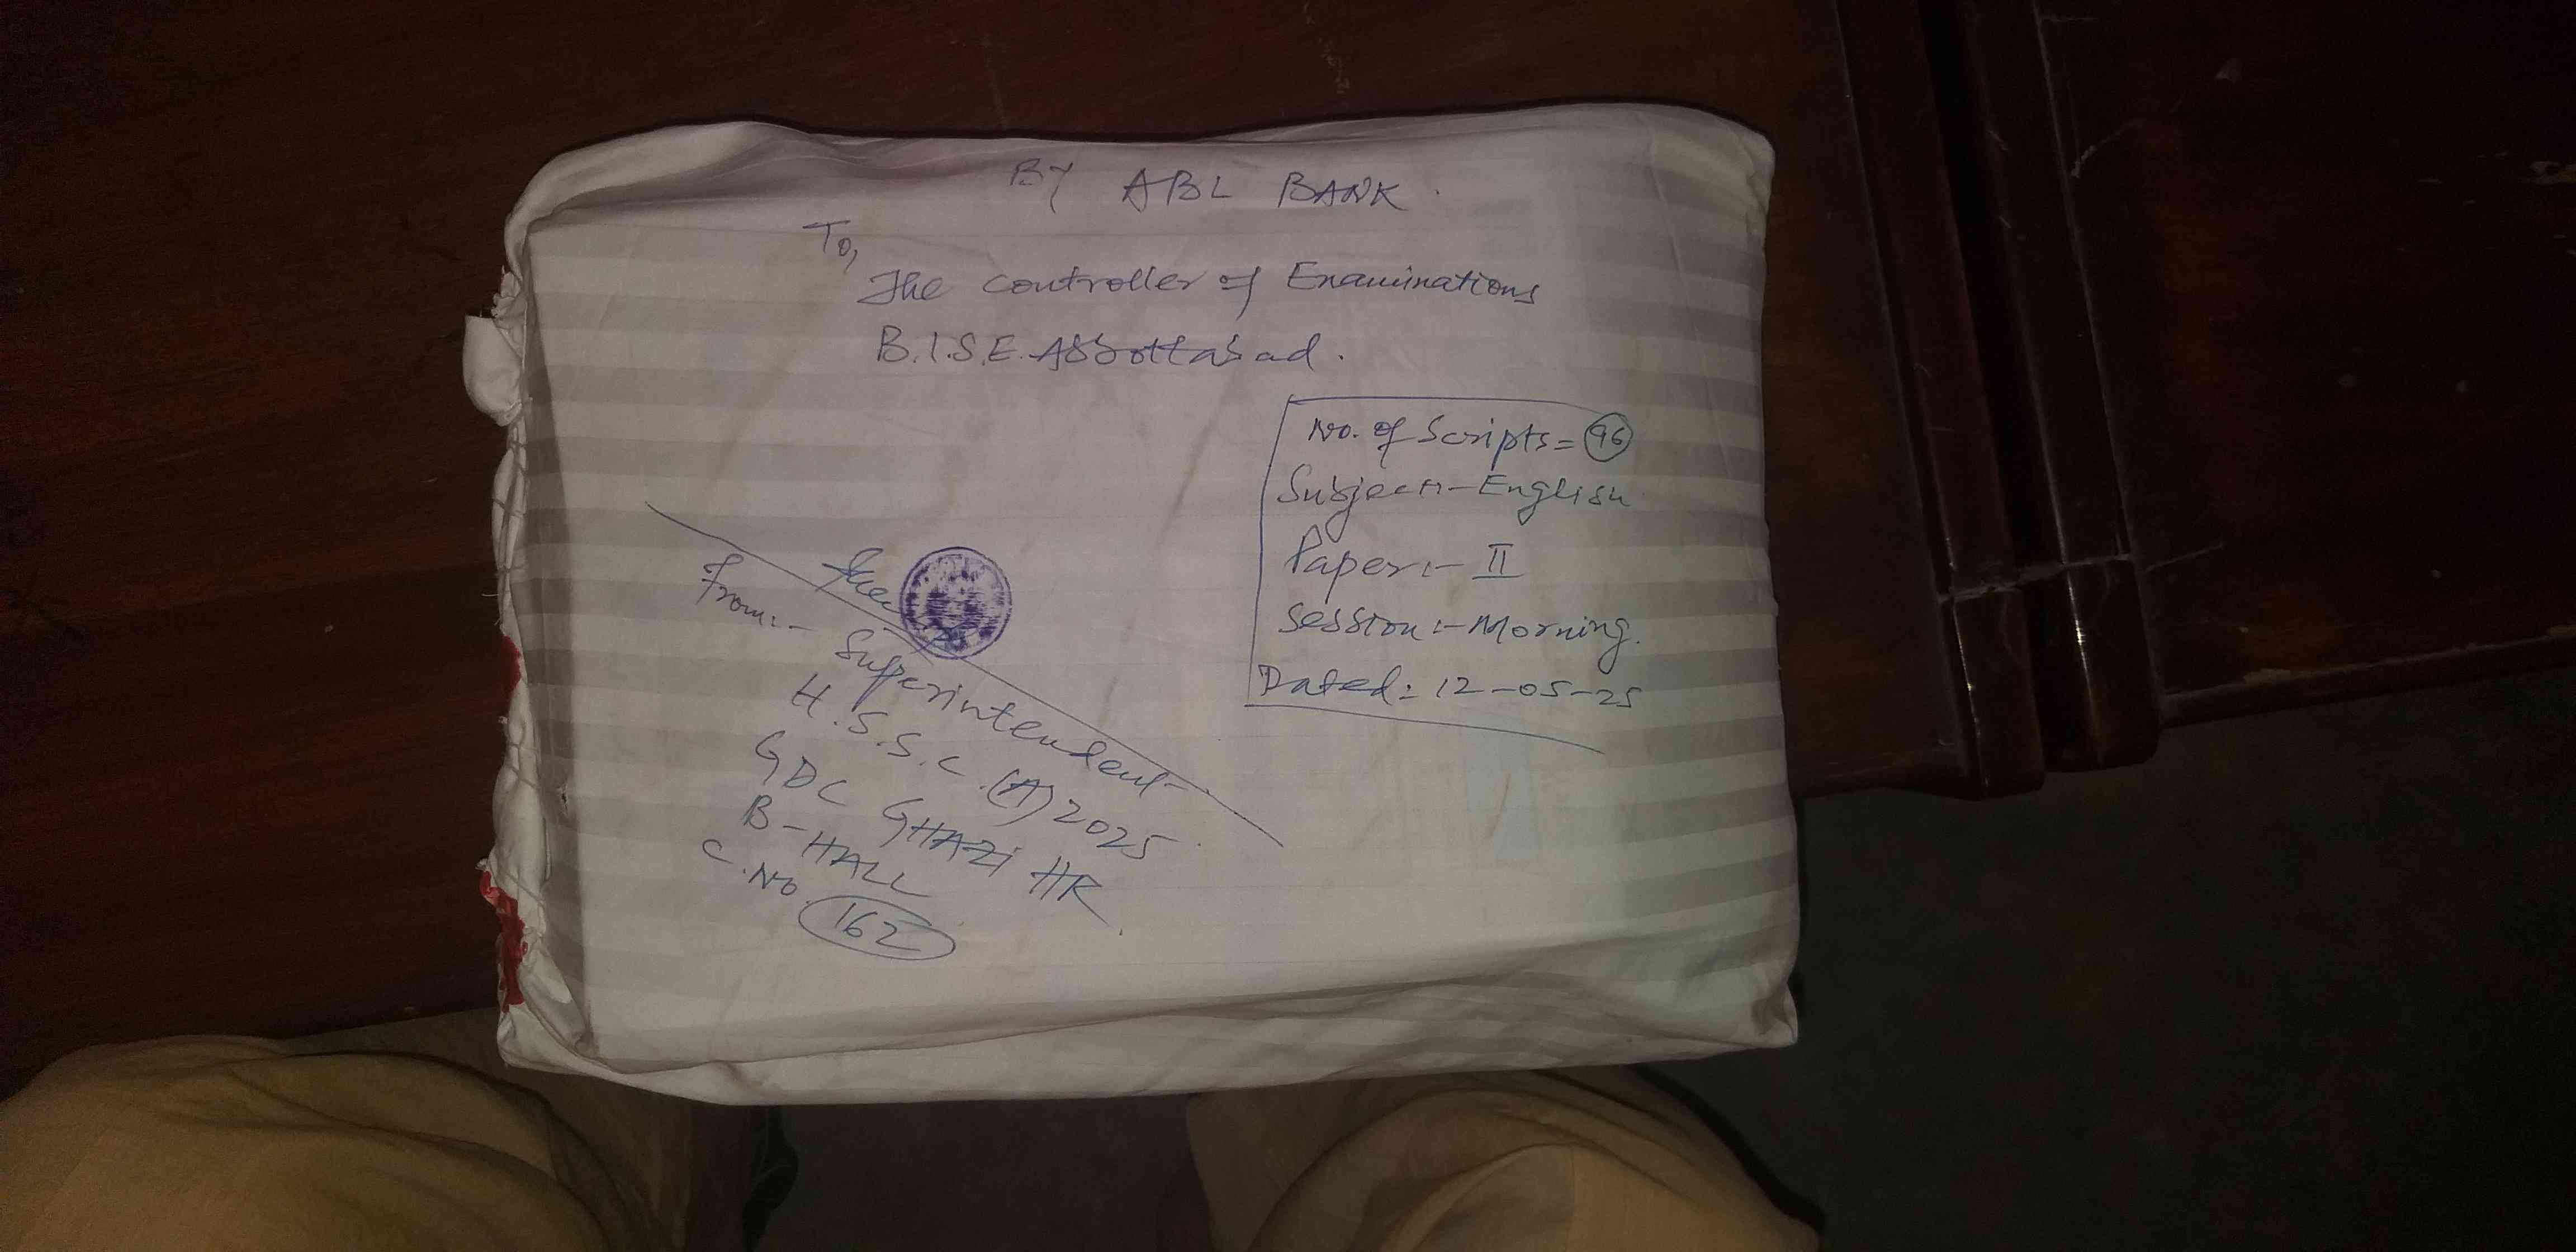 BY ABL BANK.
To,
The Controller of Examinations
B.I.S.E. Abbottabad.
No. of Scripts = 96
Subject:- English
Paper:- II
Session:- Morning.
Dated: 12-05-25
From:- Superintendent
H.S.S.C. (A) 2025
GDC GHAZI HR
B-HALL
C.No. 162